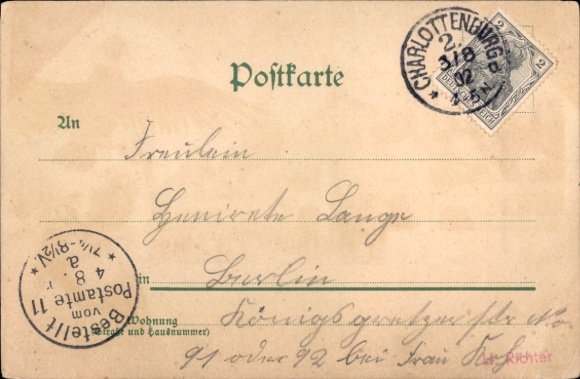 CHARLOTTENBURG
2.
3/8
02
4-5N
2
2
DEUTSCHES REICH
Postkarte
An
Freulein
Henriete Lange
in Berlin
Wohnung
(Straße und Hausnummer)
Königsgretzerstr No
91 oder 92 bei Frau
Richter
Bestellt
vom
Postamte 11
4 8.
a
7¼-8½V.